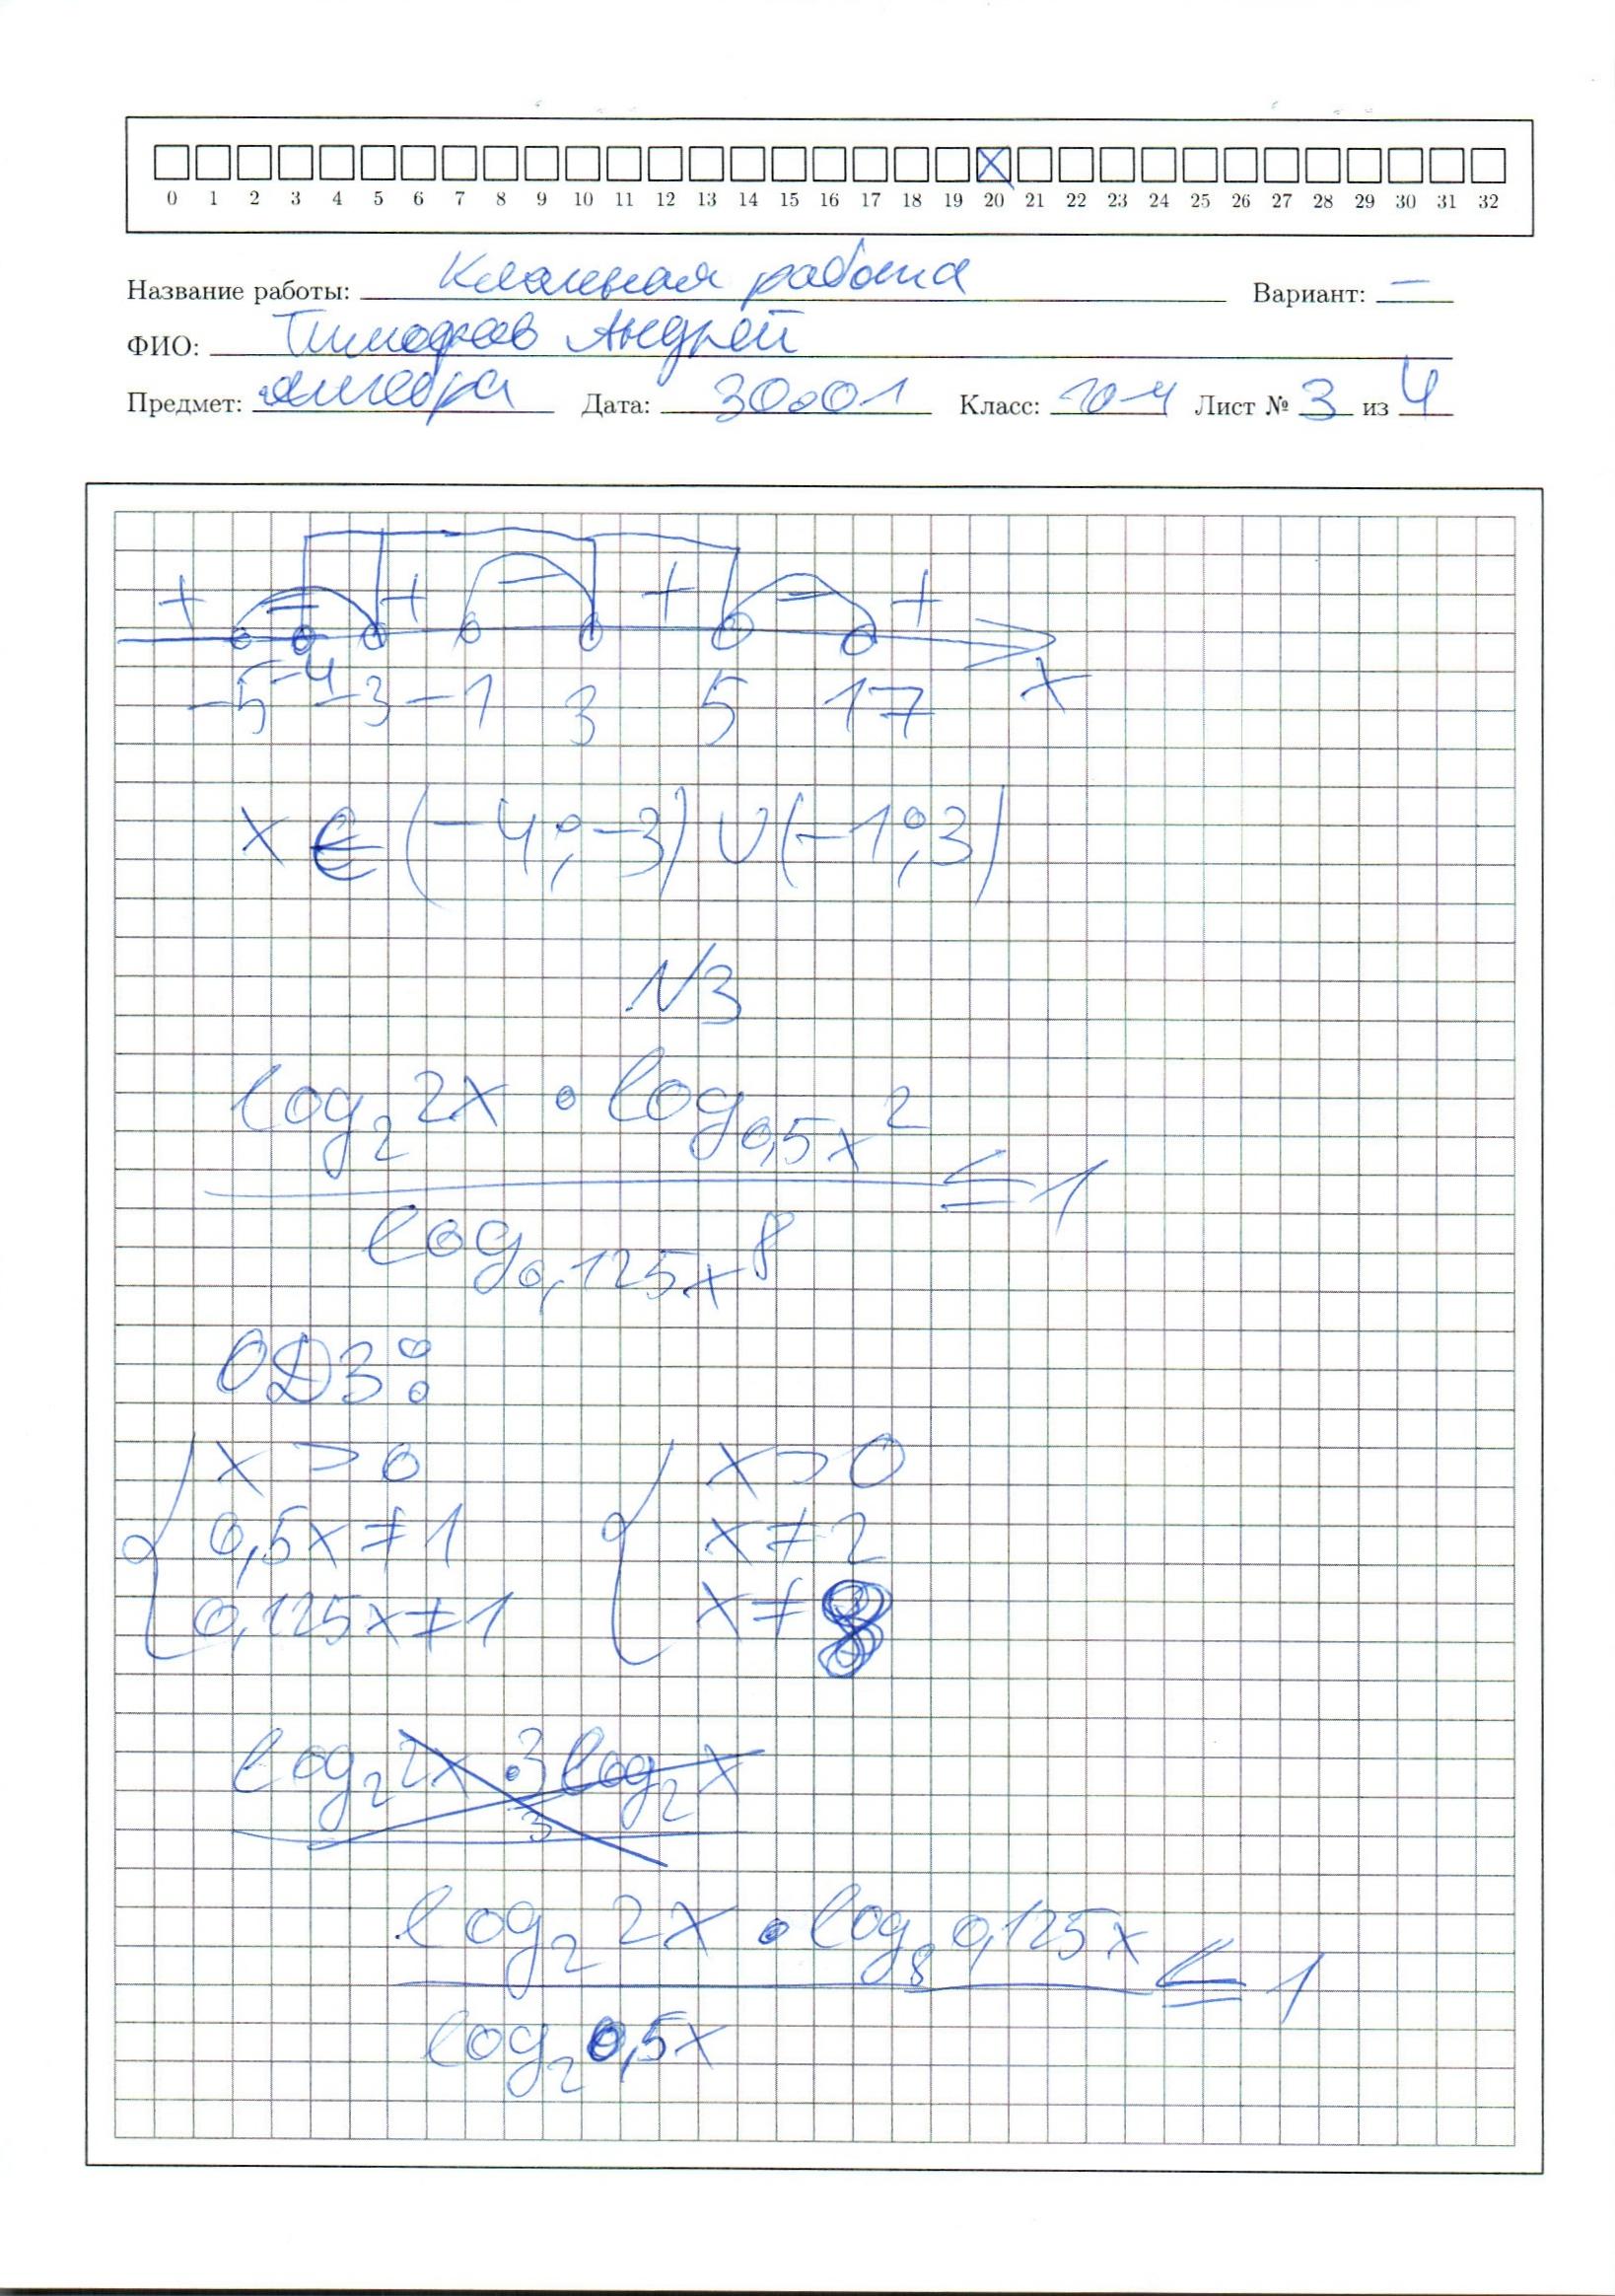 0 1 2 3 4 5 6 7 8 9 10 11 12 13 14 15 16 17 18 19 20 21 22 23 24 25 26 27 28 29 30 31 32
Название работы: Классная работа Вариант: —
ФИО: Тимофеев Андрей
Предмет: алгебра Дата: 30.01 Класс: 10-4 Лист № 3 из 4
+ − + − + − +
-5 -4 -3 -1 3 5 17 x
x ∈ (-4; -3) ∪ (-1; 3)
N3
log₂ 2x · log₀,₅ₓ 2
≤ 1
log₀,₁₂₅ₓ 8
ОДЗ:
x > 0 x > 0
0,5x ≠ 1 x ≠ 2
0,125x ≠ 1 x ≠ 8
log₂ 2x · 3 log₂ x
3
log₂ 2x · log₈ 0,125x
≤ 1
log₂ 0,5x